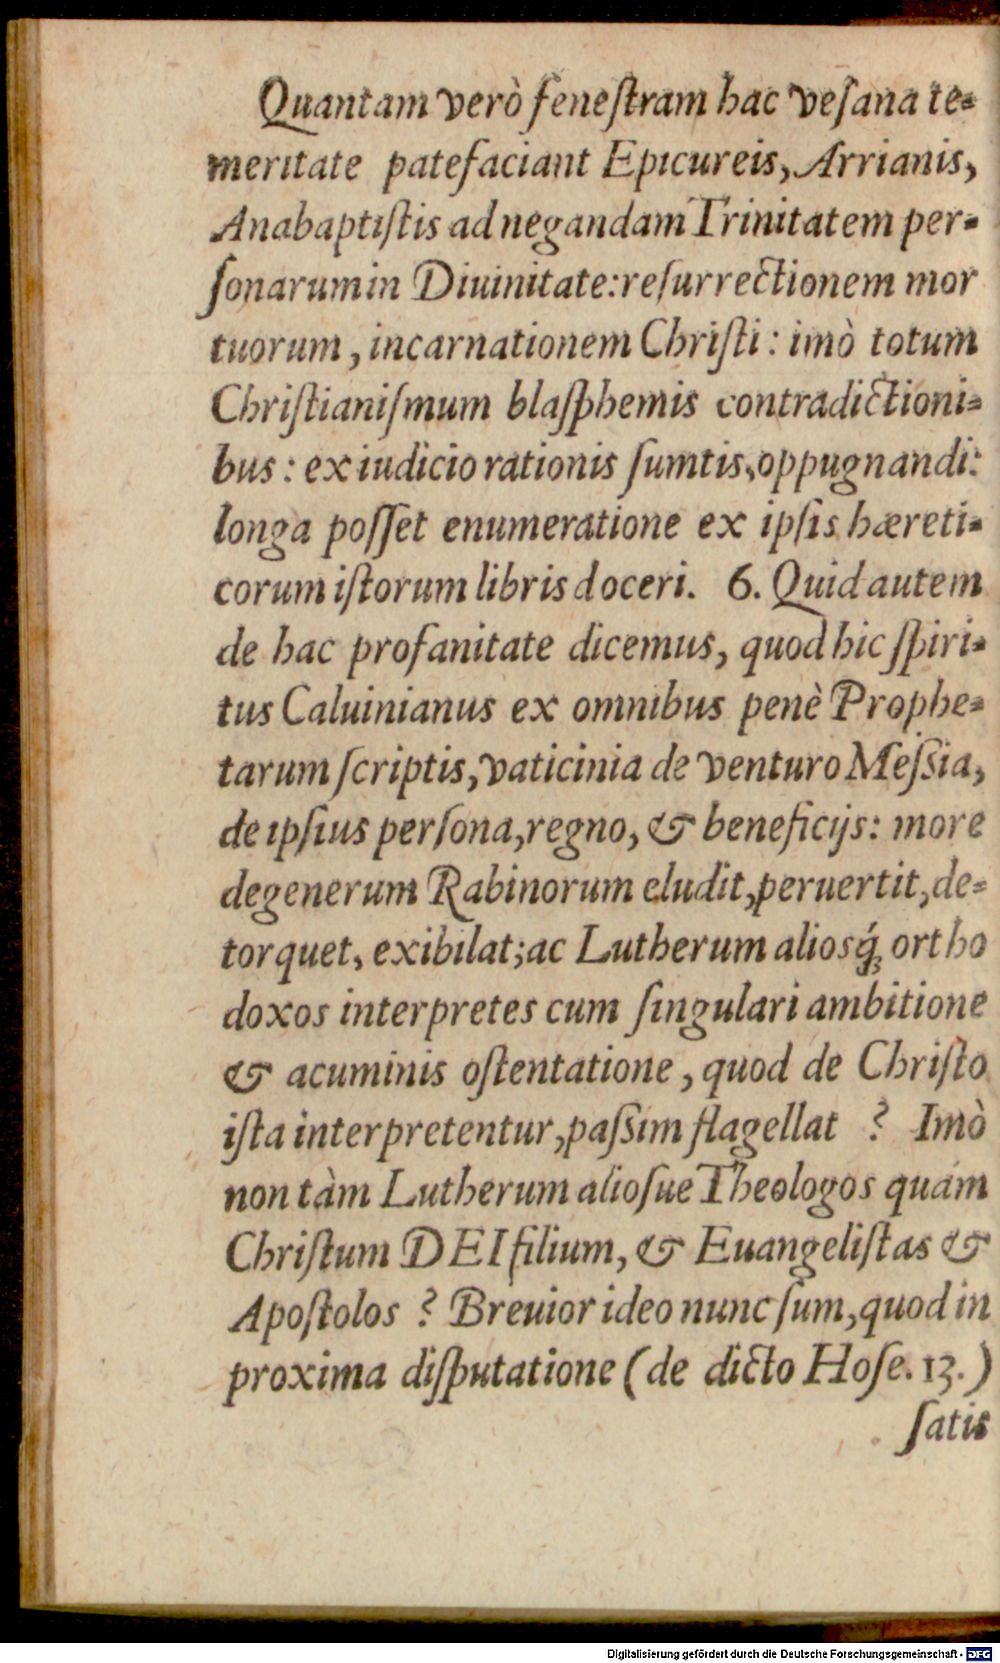 Quantam verò feneſtram hac veſana te-
meritate patefaciant Epicureis, Arrianis,
Anabaptiſtis ad negandam Trinitatem per-
ſonarum in Diuinitate: reſurrectionem mor
tuorum, incarnationem Chriſti: imò totum
Chriſtianiſmum blaſphemis contradictioni-
bus: ex iudicio rationis ſumtis, oppugnandi:
longa poſſet enumeratione ex ipſis hæreti-
corum iſtorum libris doceri. 6. Quid autem
de hac profanitate dicemus, quod hic ſpiri-
tus Caluinianus ex omnibus penè Prophe-
tarum ſcriptis, vaticinia de venturo Meſsia,
de ipſius perſona, regno, & beneficijs: more
degenerum Rabinorum eludit, peruertit, de-
torquet, exibilat; ac Lutherum aliosq́; ortho
doxos interpretes cum ſingulari ambitione
& acuminis oſtentatione, quod de Chriſto
iſta interpretentur, paſsim flagellat? Imò
non tàm Lutherum alioſue Theologos quám
Chriſtum DEI filium, & Euangeliſtas &
Apoſtolos? Breuior ideo nunc ſum, quod in
proxima diſputatione (de dicto Hoſe. 13.)
ſatis
Digitalisierung gefördert durch die Deutsche Forschungsgemeinschaft - DFG